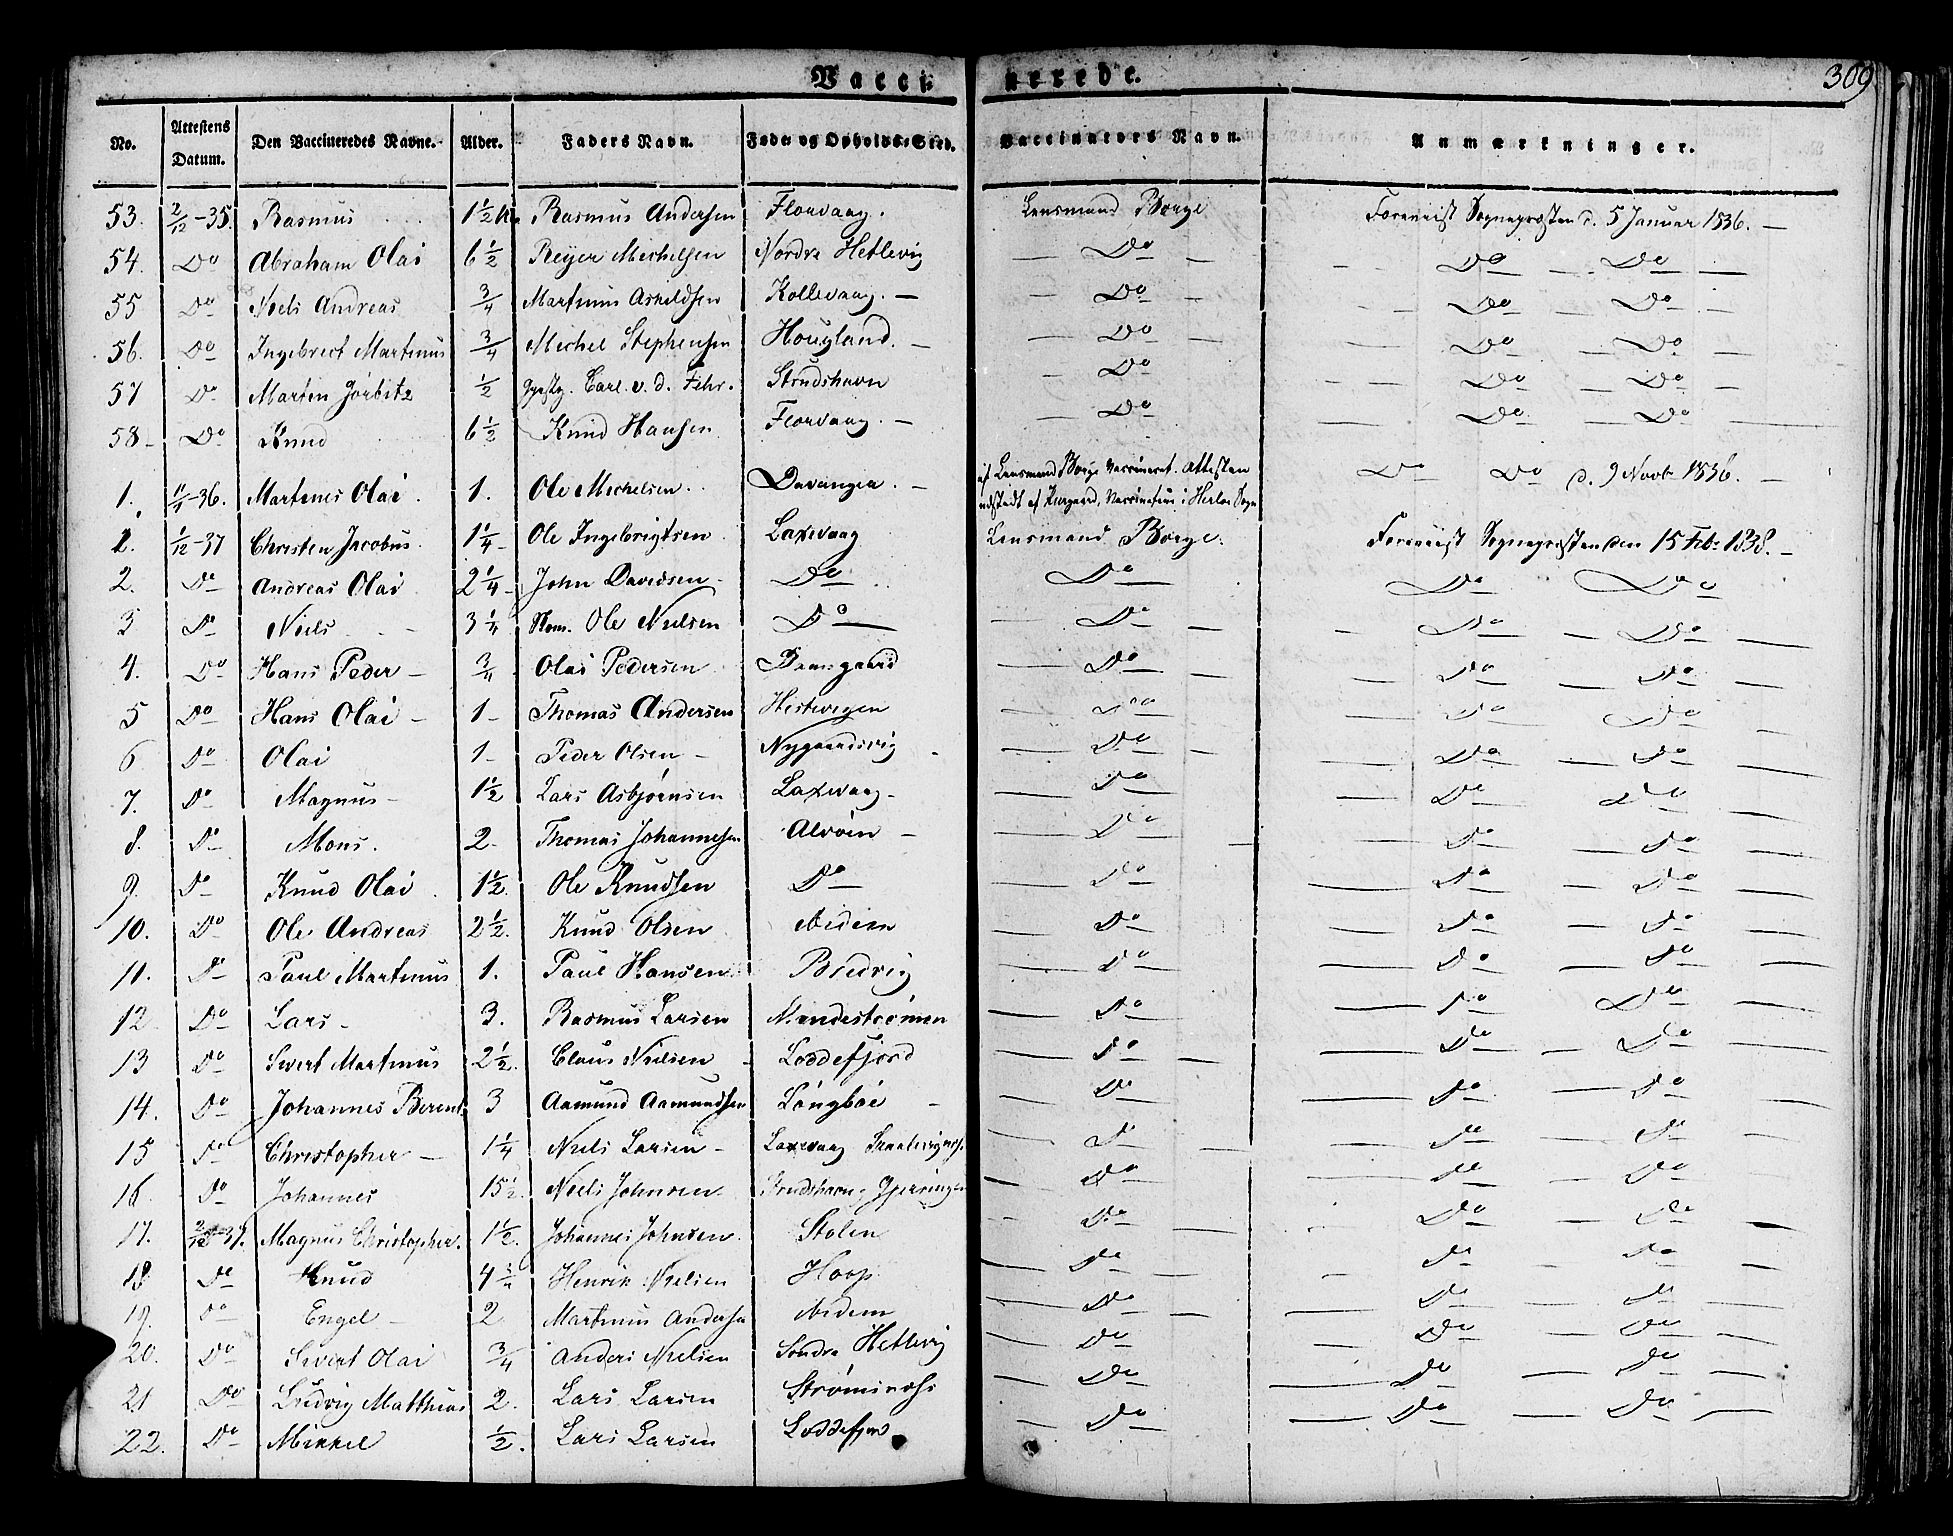 Vaccinerede. 309
No. Attestens Datum. Den Vaccineredes Navne. Alder. Faders Navn. Føde og Opholds-Sted. Vaccinators Navn. Anmærkninger.
53. 2/12-35. Rasmus 1 1/2 Rasmus Andersen Florvaag. Lensmand Borge Foreviist Sogneprosten d. 5 Januar 1836.
54. Do Abraham Olai 6 1/2 Reyer Michelsen Nordre Hetlevig Do Do Do
55 Do Niels Andreas 3/4 Martinus Askildsen Kollevaag. Do Do Do
56. Do Ingebrect Martinus 3/4 Michel Stephensen Hougland. Do Do Do
57 Do Marten Görbitz 1/2 Carl. v. d. Fehr. Strudshavn Do Do Do
58 Do Knud 6 1/2 Knud Hansen Florvaag. Do Do Do
1. 11/4-36. Martines Olai 1. Ole Michelsen. Davangen. af Lensmand Borge Vaccineret. Attesten udstædt af Kiergaard, Vaccinateur i Herlø Sogn Do Do d. 9 Novb 1836.
1. 1/12-37 Christen Jacobus. 1 1/4 Ole Ingebrigtsen Laxevaag Lensmand Borge. Foreviist Sogneprosten den 15 Feb: 1838.
2. Do Andreas Olai 2 1/4 John Davidsen Do Do Do Do
3 Do Niels 3 1/4 Ole Nielsen Do Do Do Do
4. Do Hans Peder 3/4 Olai Pedersen Damsgaard Do Do Do
5 Do Hans Olai 1 Thomas Andersen Hestvegen Do Do Do
6 Do Olai 1 Peder Olsen Nygaardsvig Do Do Do
7. Do Magnus 1 1/2 Lars Asbjørnsen Laxevaag Do Do Do
8. Do Mons. 2 Thomas Johannesen Alvøen Do Do Do
9. Do Knud Olai 1 1/2. Ole Knudsen Do Do Do Do
10. Do Ole Andreas 2 1/2. Knud Olsen ibidem Do Do Do
11. Do Paul Martinus 1. Paul Hansen Bredvig Do Do Do
12. Do Lars 3. Rasmus Larsen Mundestrømen Do Do Do
13 Do Sivert Martinus 2 1/2. Claus Nielsen Loddefjord Do Do Do
14. Do Johannes Berent 3 Aamund Aamundsen Langbøe Do Do Do
15 Do Christopher 1 1/4 Niels Larsen Laxevaag Do Do Do
16. Do Johannes 15 1/2 Niels Johnsen Strudshavn, Do Do Do
17. 2/12-37. Magnus Christopher. 1 1/2. Johannes Johnsen. Stolen Do Do Do
18 Do Knud 4 Henrik Nielsen Hoop Do Do Do
19. Do Engel 2 Martinus Andersen ibidem Do Do Do
20. Do Sivert Olai 3/4 Anders Nielsen Søndre Hetlevig Do Do Do
21 Do Ludvig Matthias 2. Lars Larsen Strømsnæss Do Do Do
22. Do Mikkel 1/2. Lars Larsen Loddefjord Do Do Do